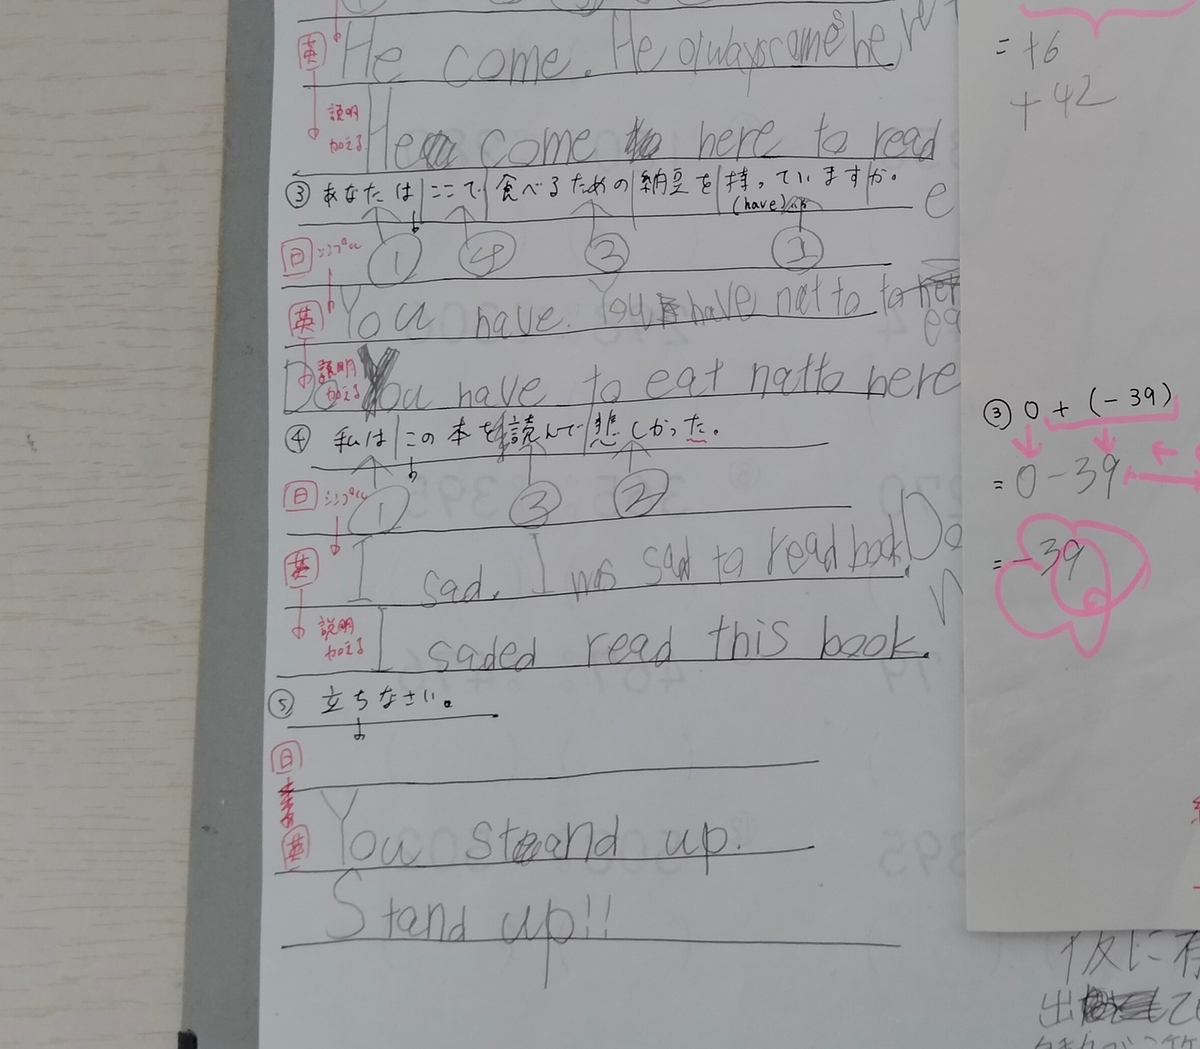 英 He come. He always comes he
説明
加える
He come here to read
③ あなたは|ここで|食べるための|納豆を|持っています|か。
(have)
e
日 シンプル ① ④ ③ ②
英 You have. You have natto to
ea
説明
加える
Do You have to eat natto here
④ 私は|この本を|読んで|悲しかった。
日 シンプル ① ③ ②
英 I sad. I was sad to read book. Do
説明
加える
I saded read this book.
⑤ 立ちなさい。
日
英 You stand up.
Stand up!!
= +6
+ 42
③ 0 + (-39)
= 0-39
= -39